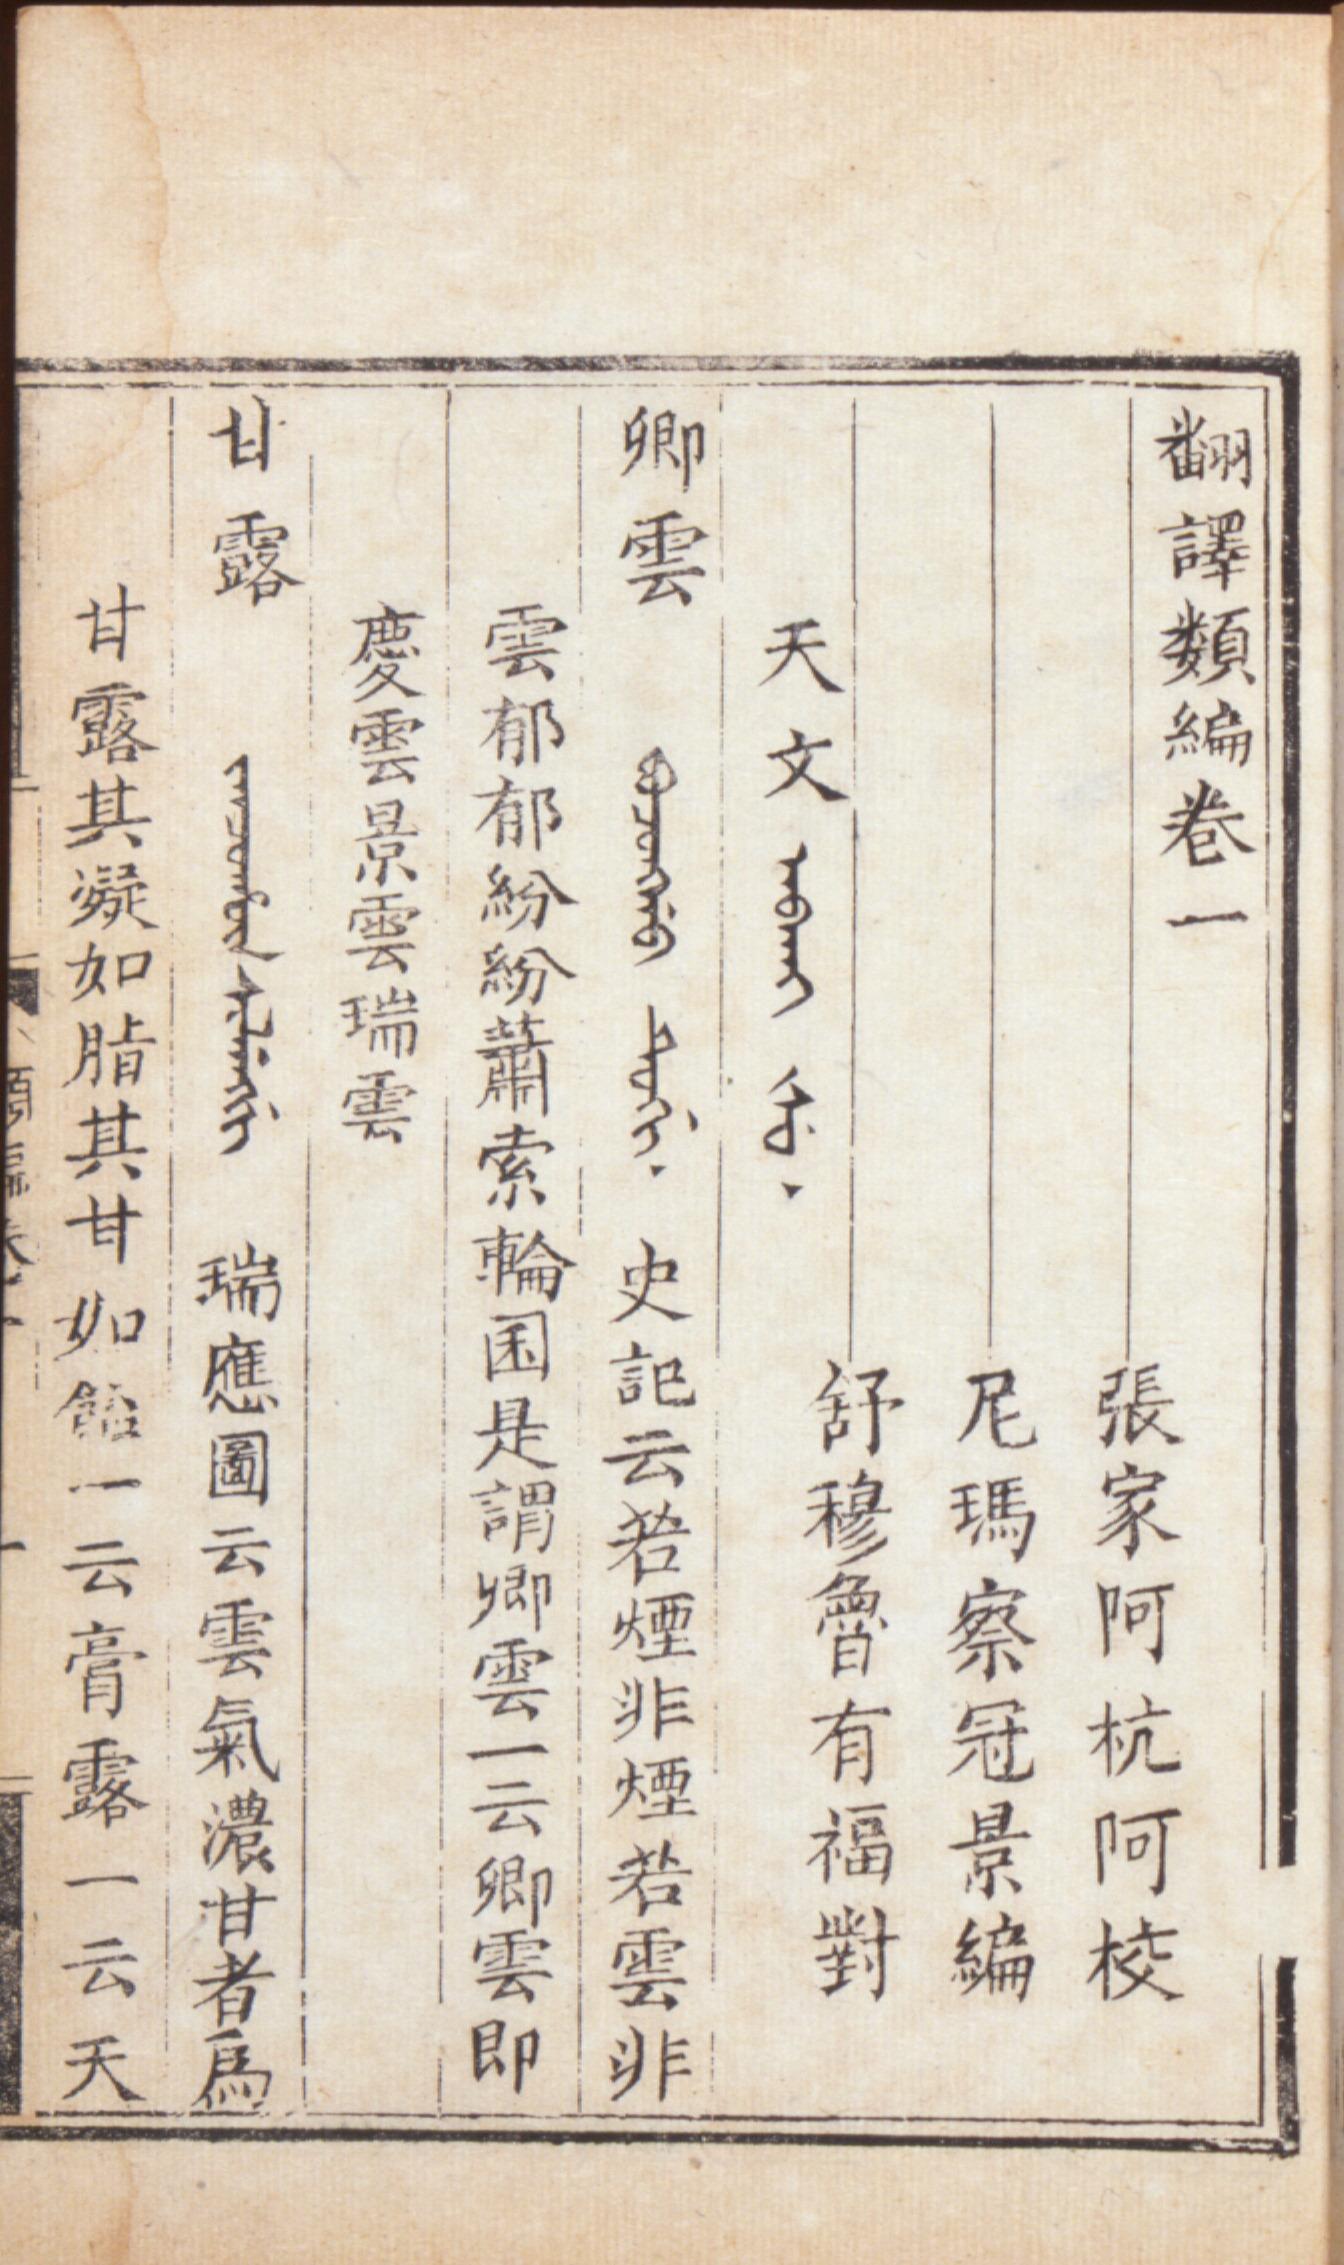 翻譯類編卷一
張家阿杭阿校
尼瑪察冠景編
舒穆魯有福對
天文 ᠠᠪᡴᠠᡳ ᡧᡠ᠈
卿雲 史記云若煙非煙若雲非
雲郁郁紛紛蕭索輪囷是謂卿雲一云卿雲即
慶雲景雲瑞雲
甘露 ᠵᠠᠨᠴᡠᡥᡡᠨ ᠰᡳᠯᡝᠩᡤᡳ 瑞應圖云雲氣濃甘者爲
甘露其凝如脂其甘如飴一云膏露一云天